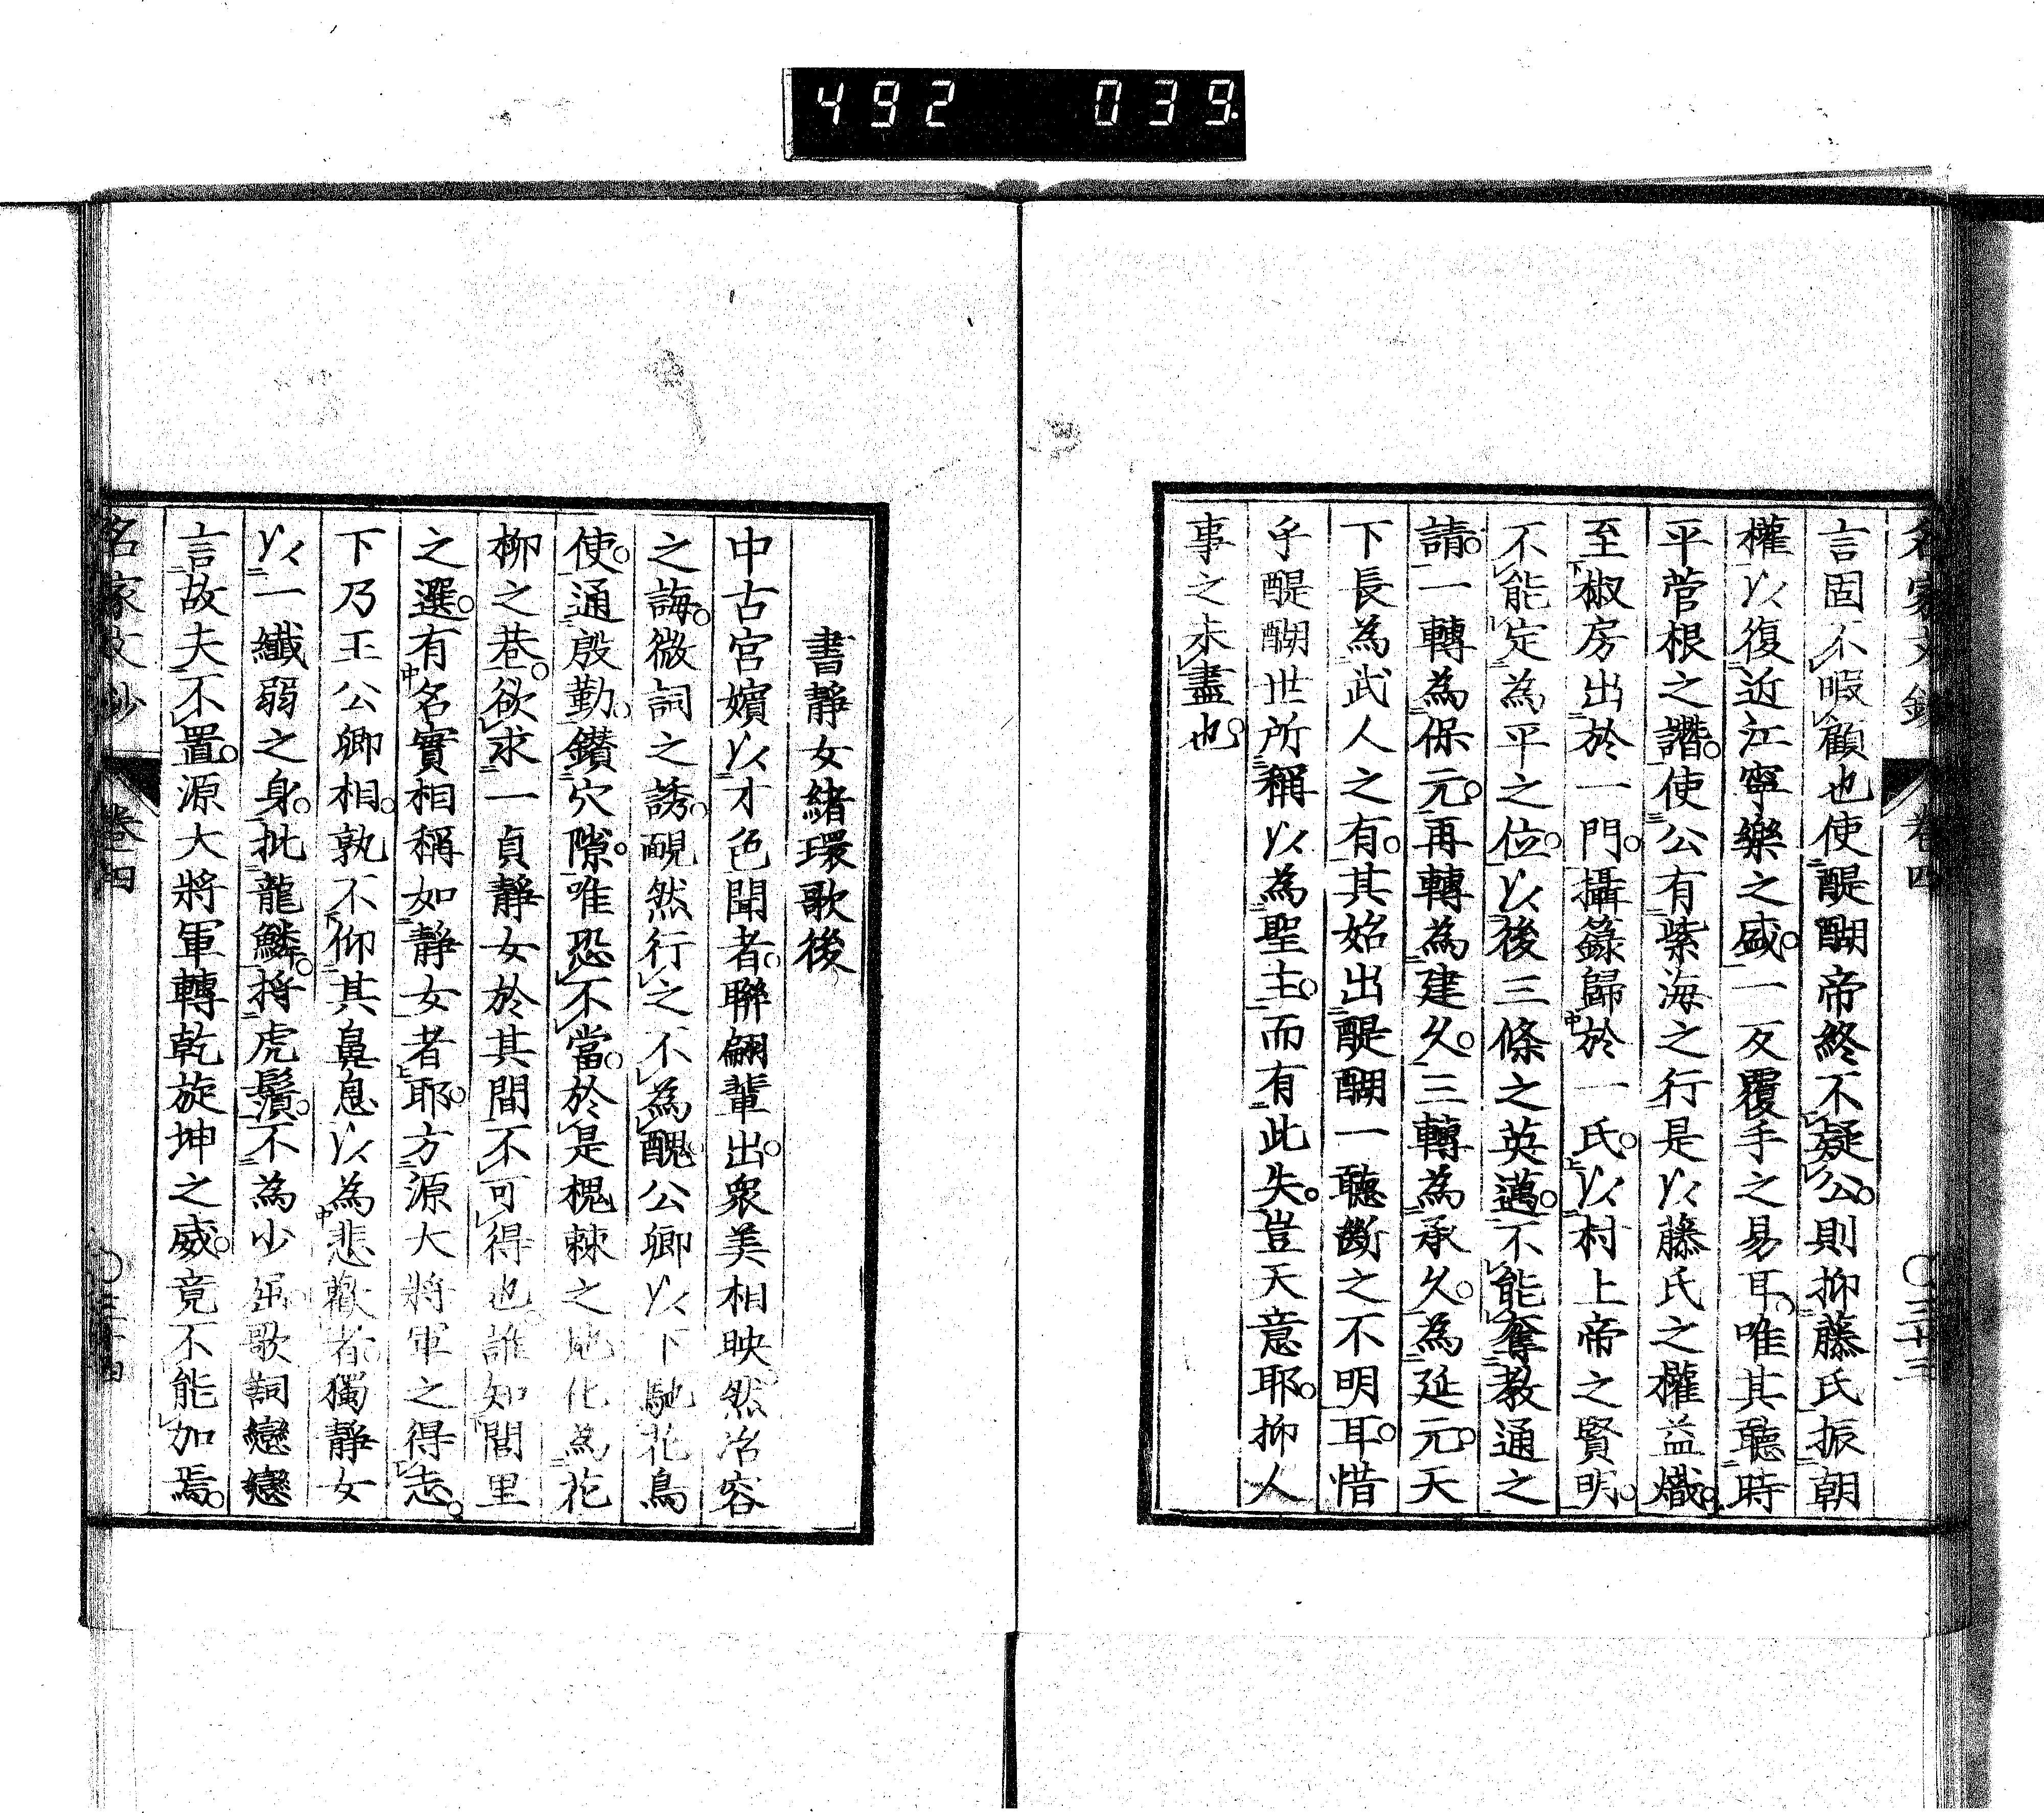 492 039
名家文鈔 卷四 ○三十三
言固不暇顧也使醍醐帝終不疑公則抑藤氏振朝
權以復近江寧樂之盛一反覆手之易耳唯其聽時
平菅根之譖使公有紫海之行是以藤氏之權益熾
至椒房出於一門攝籙歸於一氏以村上帝之賢明
不能定為平之位以後三條之英邁不能奪教通之
請一轉為保元再轉為建久三轉為承久為延元天
下長為武人之有其始出醍醐一聽斷之不明耳惜
乎醍醐世所稱以為聖主而有此失豈天意耶抑人
事之未盡也
書靜女緒環歌後
中古宮嬪以才色聞者聯翩輩出衆美相映然冶容
之誨微詞之誘靦然行之不為醜公卿以下馳花鳥
使通殷勤鑽穴隙唯恐不當於是槐棘之地化為花
柳之巷欲求一貞靜女於其間不可得也誰知閭里
之選有名實相稱如靜女者耶方源大將軍之得志
下乃王公卿相孰不仰其鼻息以為悲歡者獨靜女
以一纖弱之身批龍鱗捋虎鬚不為少屈歌詞戀戀
言故夫不置源大將軍轉乾旋坤之威竟不能加焉
名家文鈔 卷四 ○三十四